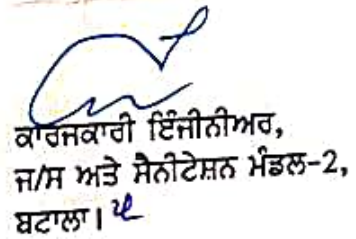 ਕਾਰਜਕਾਰੀ ਇੰਜੀਨੀਅਰ,
ਜ/ਸ ਅਤੇ ਸੈਨੀਟੇਸ਼ਨ ਮੰਡਲ-2,
ਬਟਾਲਾ।